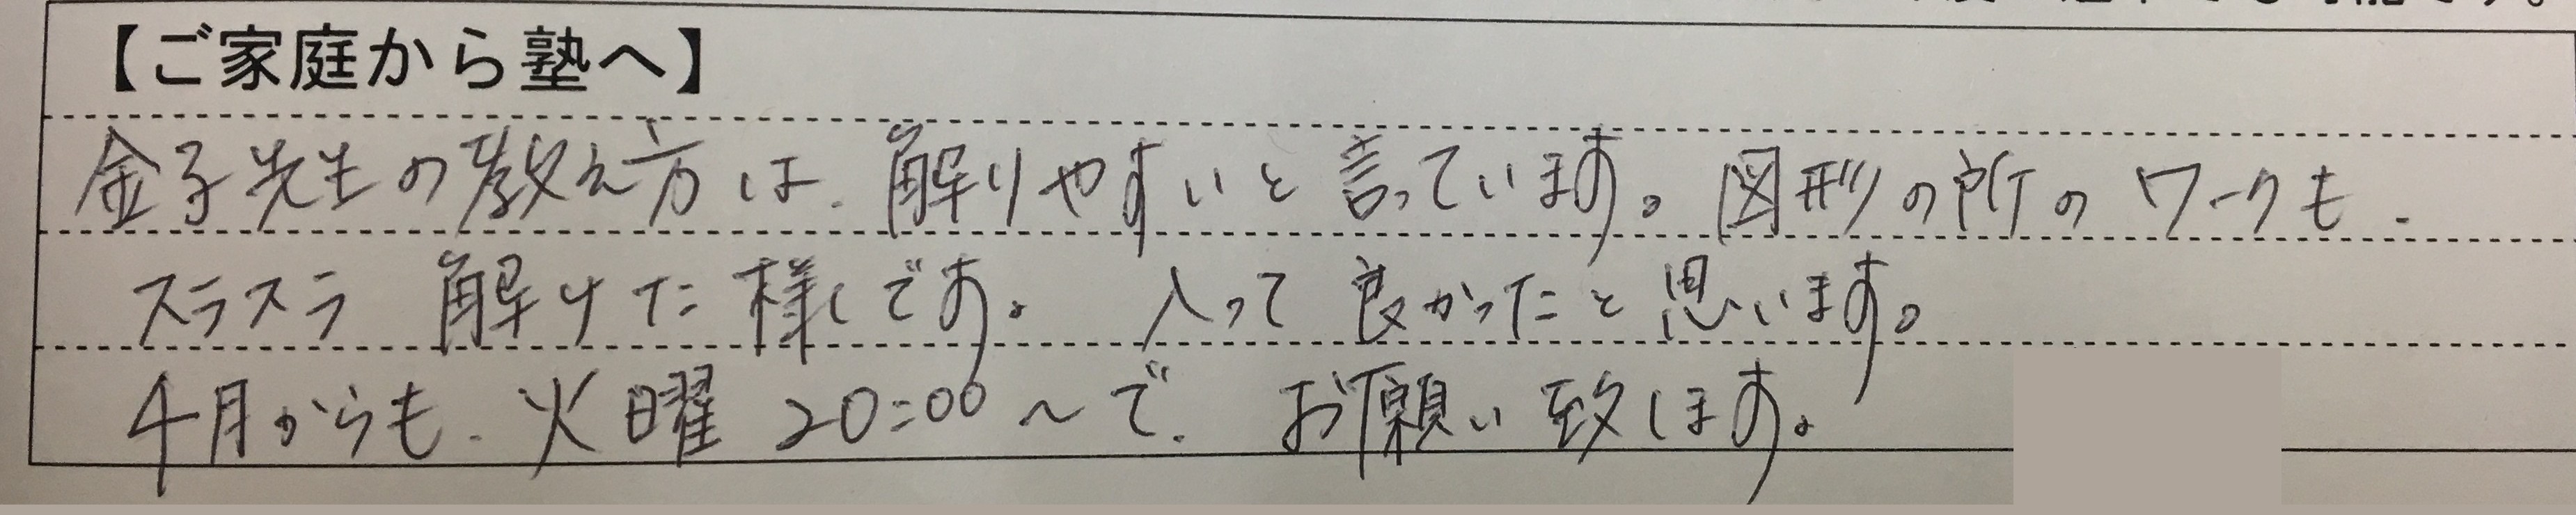 【ご家庭から塾へ】
金子先生の教え方は、解りやすいと言っています。図形の所のワークも、
スラスラ 解けた様です。 入って良かったと思います。
4月からも、火曜 20:00〜で、お願い致します。